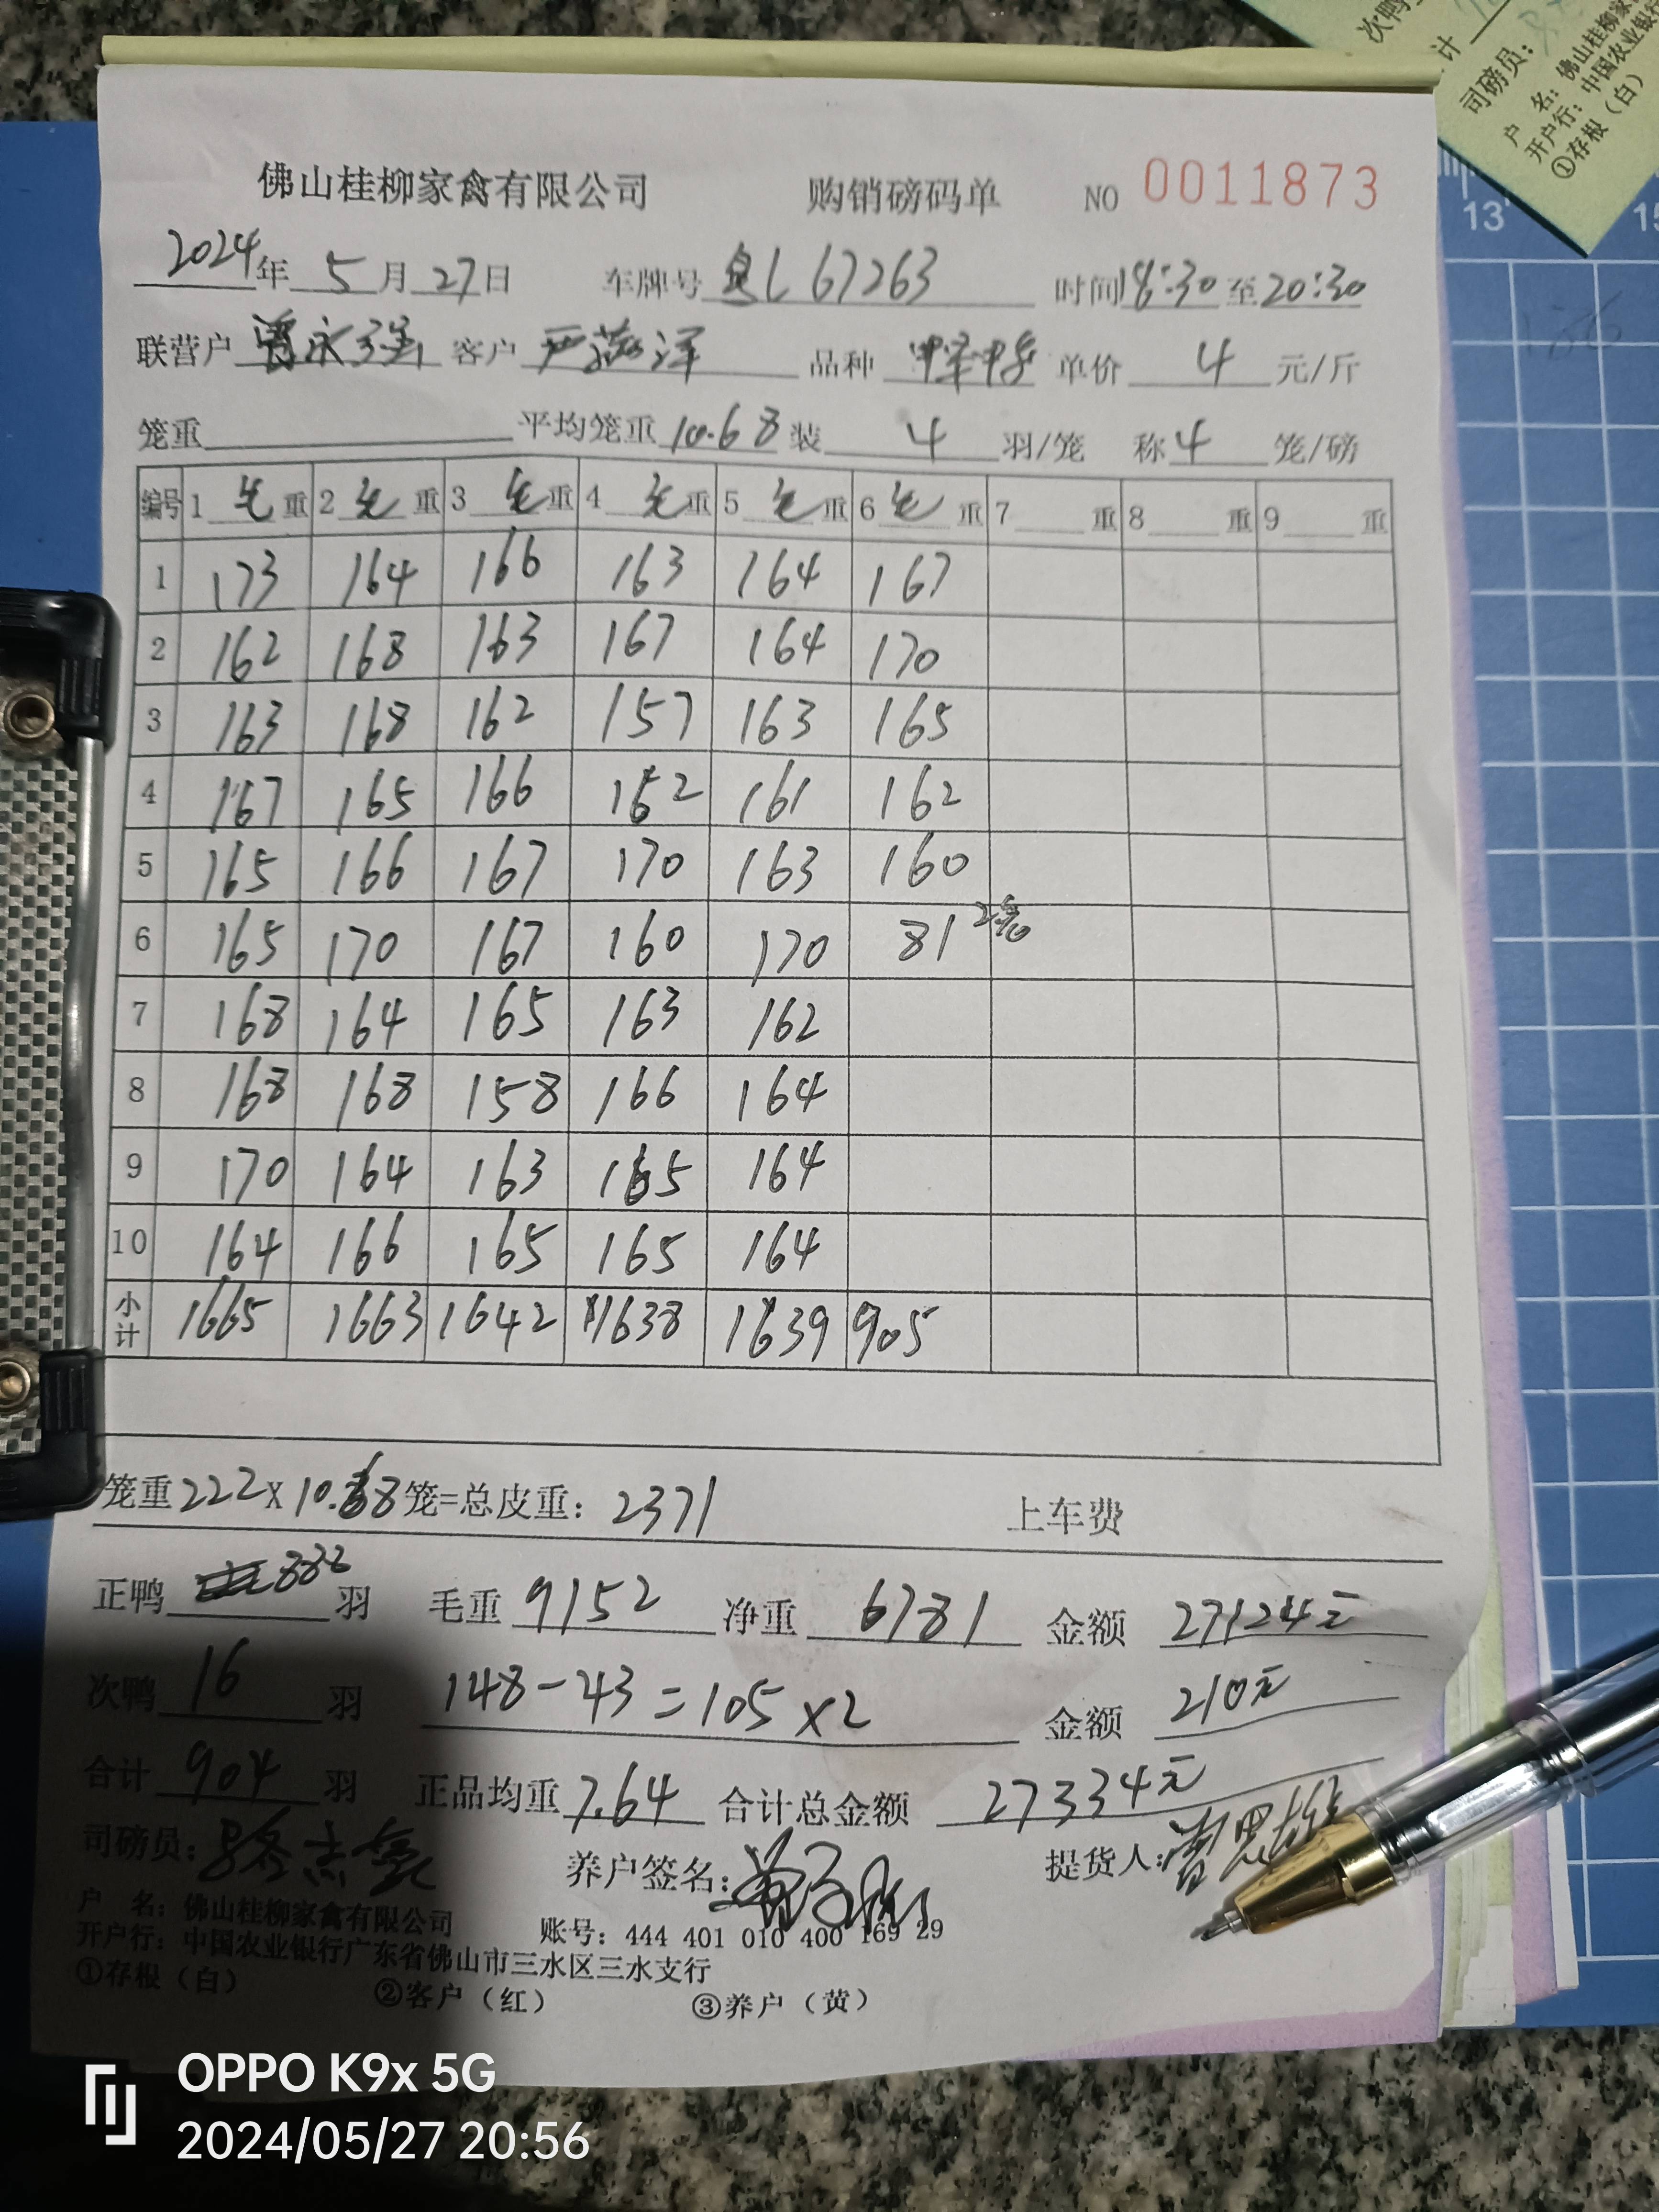 次鸭
计
司磅员：
户 名：佛山桂柳家
开户行：中国农业银行
①存根（白）
13
15
佛山桂柳家禽有限公司 购销磅码单 NO 0011873
2024年 5月27日 车牌号 粤L 67263 时间18:30至20:30
联营户 曾永强 客户 严 品种 单价 4 元/斤
笼重 平均笼重 10.68 装 4 羽/笼 称 4 笼/磅
编号 1 毛 重 2 毛 重 3 毛 重 4 毛 重 5 毛 重 6 毛 重 7 重 8 重 9 重
1 173 164 166 163 164 167
2 162 168 163 167 164 170
3 163 168 162 157 163 165
4 167 165 166 162 161 162
5 165 166 167 170 163 160
6 165 170 167 160 170 81
7 168 164 165 163 162
8 168 168 158 166 164
9 170 164 163 165 164
10 164 166 165 165 164
小计 1665 1663 1642 1638 1639 905
笼重222X10.68笼=总皮重：2371 上车费
正鸭 888 羽 毛重 9152 净重 6781 金额 27124元
次鸭 16 羽 148-43=105×2 金额 210元
合计 904 羽 正品均重 7.64 合计总金额 27334元
司磅员： 养户签名： 提货人：
户 名：佛山桂柳家禽有限公司 账号：444 401 010 400 169 29
开户行：中国农业银行广东省佛山市三水区三水支行
①存根（白） ②客户（红） ③养户（黄）
OPPO K9x 5G
2024/05/27 20:56